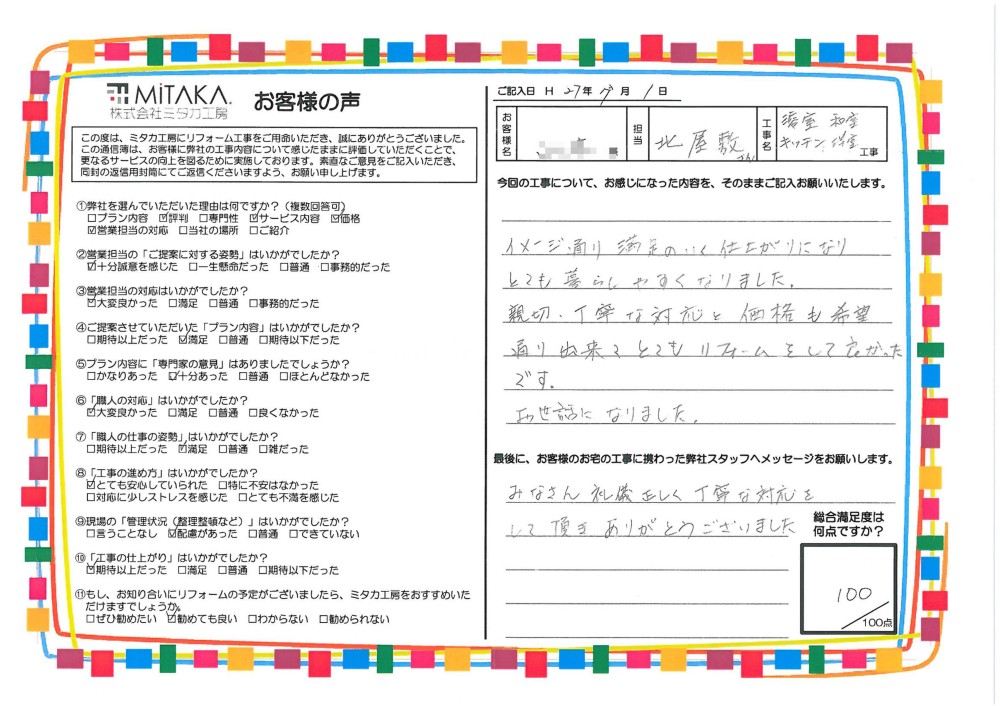 MiTAKA.
株式会社ミタカ工房
お客様の声
この度は、ミタカ工房にリフォーム工事をご用命いただき、誠にありがとうございました。
この通信簿は、お客様に弊社の工事内容について感じたままに評価していただくことで、
更なるサービスの向上を図るために実施しております。素直なご意見をご記入いただき、
同封の返信用封筒にてご返信くださいますよう、お願い申し上げます。
①弊社を選んでいただいた理由は何ですか?(複数回答可)
□プラン内容 ☑評判 □専門性 ☑サービス内容 ☑価格
☑営業担当の対応 □当社の場所 □ご紹介
②営業担当の「ご提案に対する姿勢」はいかがでしたか?
☑十分誠意を感じた □一生懸命だった □普通 □事務的だった
③営業担当の対応はいかがでしたか?
☑大変良かった □満足 □普通 □事務的だった
④ご提案させていただいた「プラン内容」はいかがでしたか?
□期待以上だった ☑満足 □普通 □期待以下だった
⑤プラン内容に「専門家の意見」はありましたでしょうか?
□かなりあった ☑十分あった □普通 □ほとんどなかった
⑥「職人の対応」はいかがでしたか?
☑大変良かった □満足 □普通 □良くなかった
⑦「職人の仕事の姿勢」はいかがでしたか?
□期待以上だった ☑満足 □普通 □雑だった
⑧「工事の進め方」はいかがでしたか?
☑とても安心していられた □特に不安はなかった
□対応に少しストレスを感じた □とても不満を感じた
⑨現場の「管理状況(整理整頓など)」はいかがでしたか?
□言うことなし ☑配慮があった □普通 □できていない
⑩「工事の仕上がり」はいかがでしたか?
☑期待以上だった □満足 □普通 □期待以下だった
⑪もし、お知り合いにリフォームの予定がございましたら、ミタカ工房をおすすめいた
だけますでしょうか。
□ぜひ勧めたい ☑勧めても良い □わからない □勧められない
ご記入日 H 27年 月 1日
お客様名
様
担当 北屋敷さん
工事名 浴室 和室
キッチン、洋室 工事
今回の工事について、お感じになった内容を、そのままご記入お願いいたします。
イメージ通り 満足のいく仕上がりになり
とても暮らしやすくなりました。
親切、丁寧な対応と 価格も希望
通り出来て とてもリフォームをして良かった
です。
お世話になりました。
最後に、お客様のお宅の工事に携わった弊社スタッフへメッセージをお願いします。
みなさん 礼儀正しく 丁寧な対応を
して頂き ありがとうございました
総合満足度は
何点ですか?
100
/100点